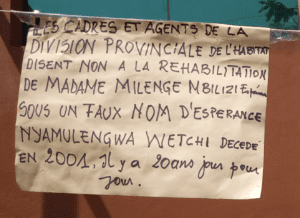 LES CADRES ET AGENTS DE LA
DIVISION PROVINCIALE DE L'HABITAT
DISENT NON A LA REHABILITATION
DE MADAME MILENGE MBILIZI
SOUS UN FAUX NOM D'ESPERANCE
NYAMULENGWA WETCHI DECEDE
EN 2001. Il y a 20ans jour pour
jour.